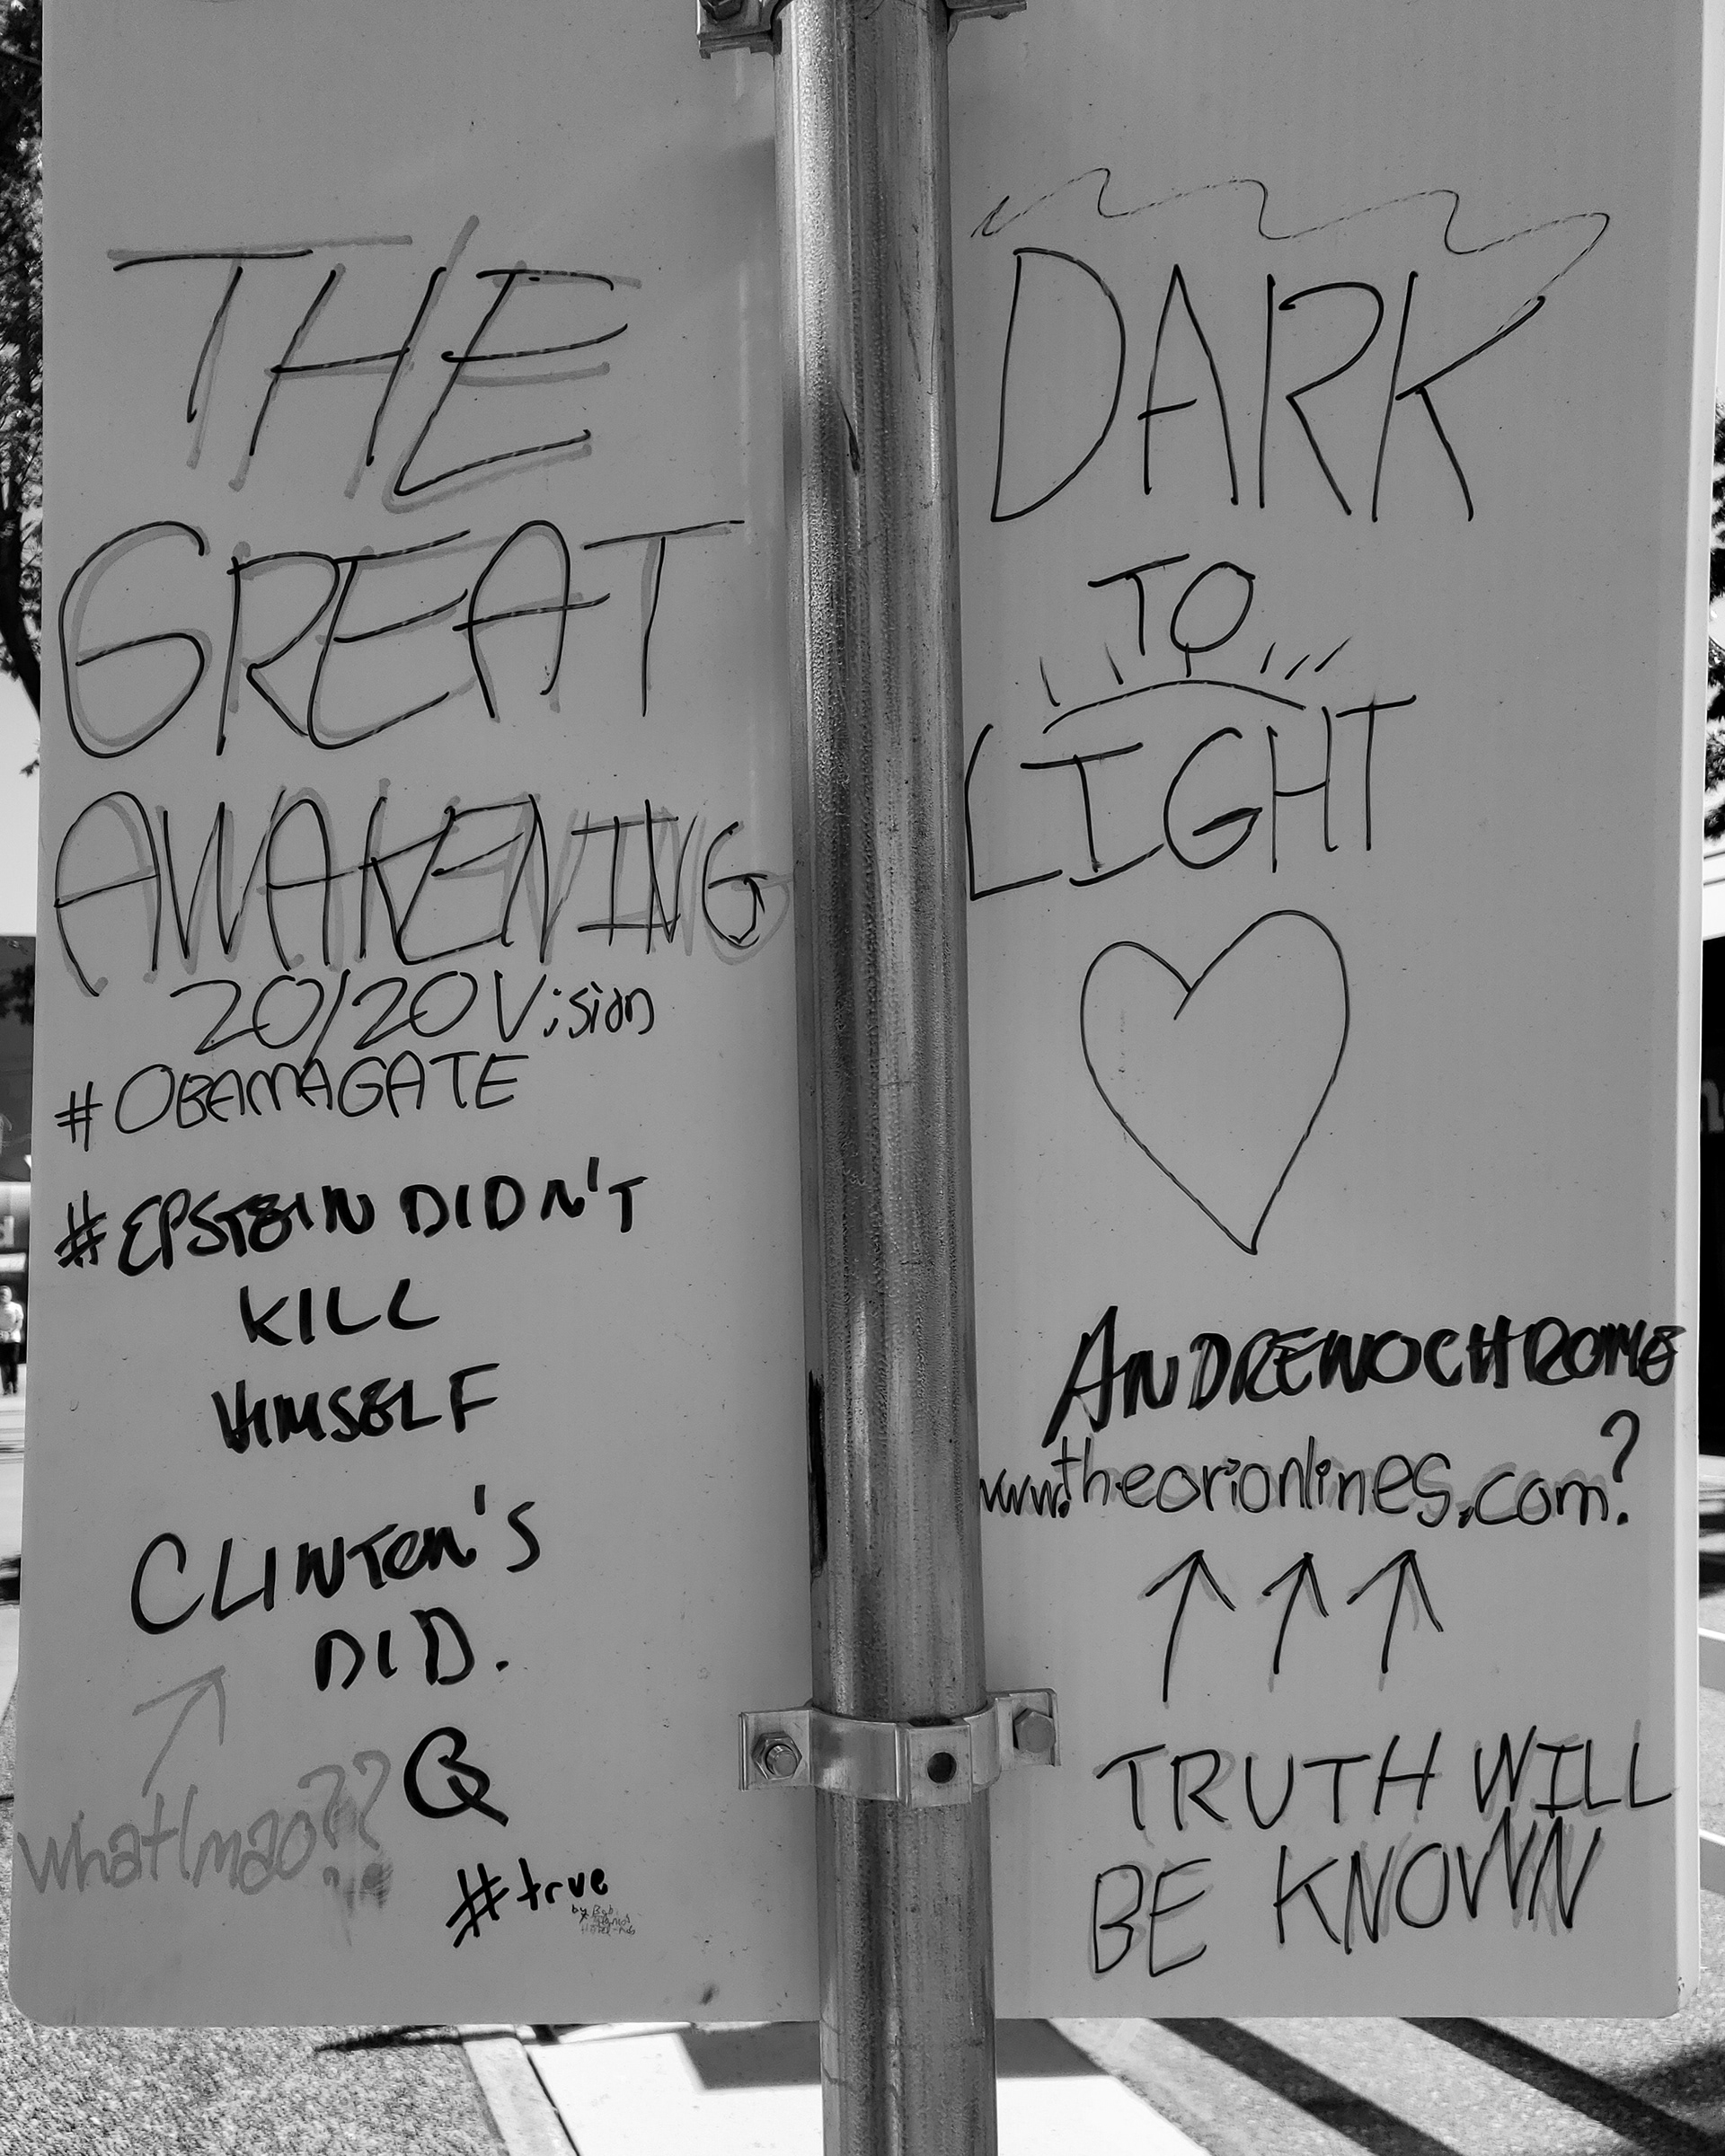 THE
GREAT
AWAKENING
20/20 Vision
#OBAMAGATE
#EPSTEIN DIDN'T
KILL
HIMSELF
CLINTON'S
DID.
whatlmao??
Q
#true
by Bob
DARK
TO
LIGHT
ANDRENOCHROME
www.theorionlines.com?
TRUTH WILL
BE KNOWN